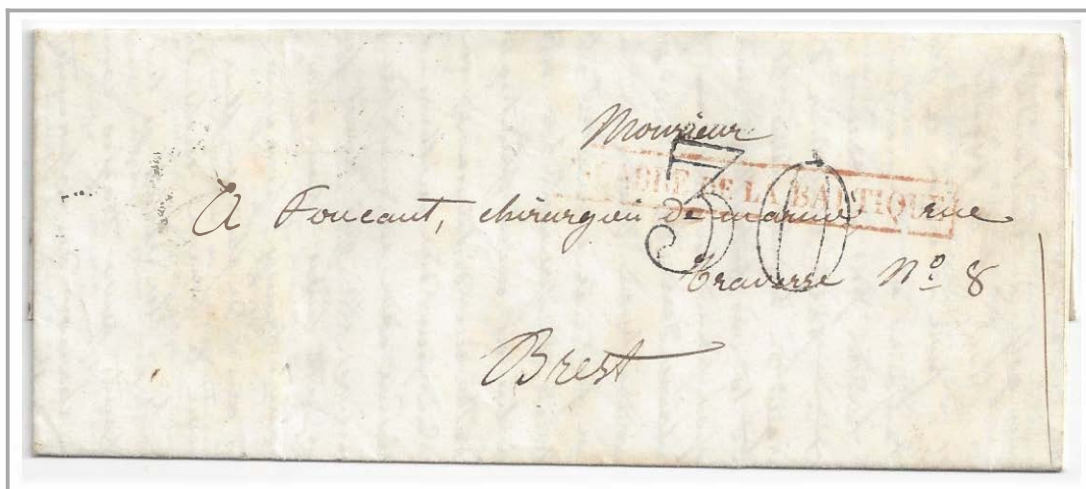 Monsieur
30
ADRE DE LA BALTIQUE
A Foucaut, chirurgien de marine rue
traverse Nº 8
Brest